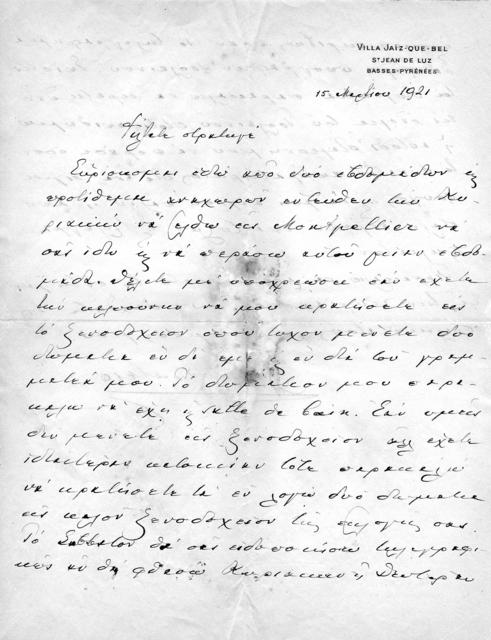 VILLA JAÏZ-QUE-BEL
ST JEAN DE LUZ
BASSES-PYRÉNÉES
15 Μαρτίου 1921
Φίλτατε στρατηγέ
Ευρίσκομαι εδώ από δύο εβδομάδων κ
προτίθεμαι αναχωρών εντεύθεν την Κυ-
ριακήν να έλθω εις Montpellier να
σας ιδώ κ να περάσω αυτού μίαν εβδο-
μάδα. Θέλετε με υποχρεώσει εάν έχετε
την καλωσύνην να μου κρατήσετε εις
το ξενοδοχείον όπου τυχόν μένετε δύο
δωμάτια εν δι' εμέ κ εν διά τον γραμ-
ματέα μου. Το δωμάτιον μου παρα-
καλώ να έχη κ salle de bain. Εάν υμείς
δεν μένετε εις ξενοδοχείον αλλ' έχετε
ιδιαιτέραν κατοικίαν τότε παρακαλώ
να κρατήσετε τα εν λόγω δύο δωμάτια
εις καλόν ξενοδοχείον της εκλογής σας.
Το Σάββατον θα σας ειδοποιήσω τηλεγραφι-
κώς αν θα φθάσω Κυριακήν ή Δευτέραν